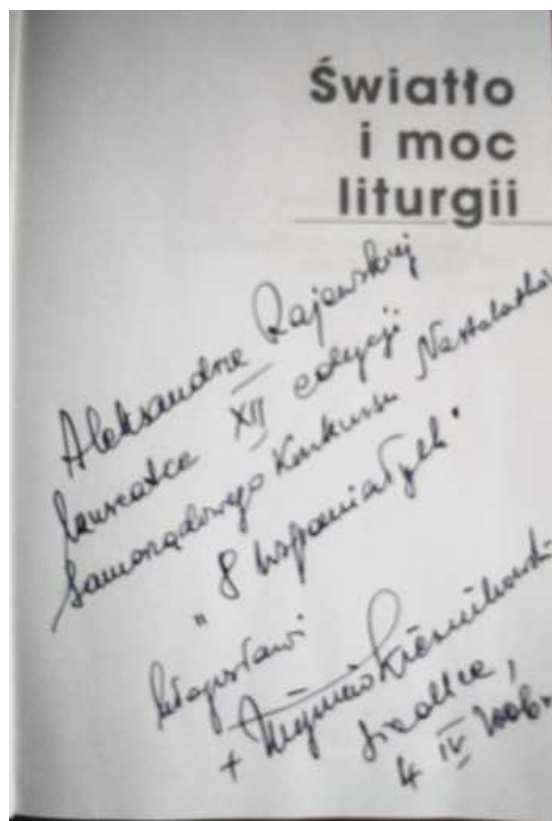 Światło
i moc
liturgii
Aleksandrze Rajewskiej
laureatce XII edycji
Samorządowego Konkursu Nastolatków
"8 Wspaniałych"
błogosławi
+ Zbigniew Kiernikowski
Siedlce,
4 IV 2006 r.